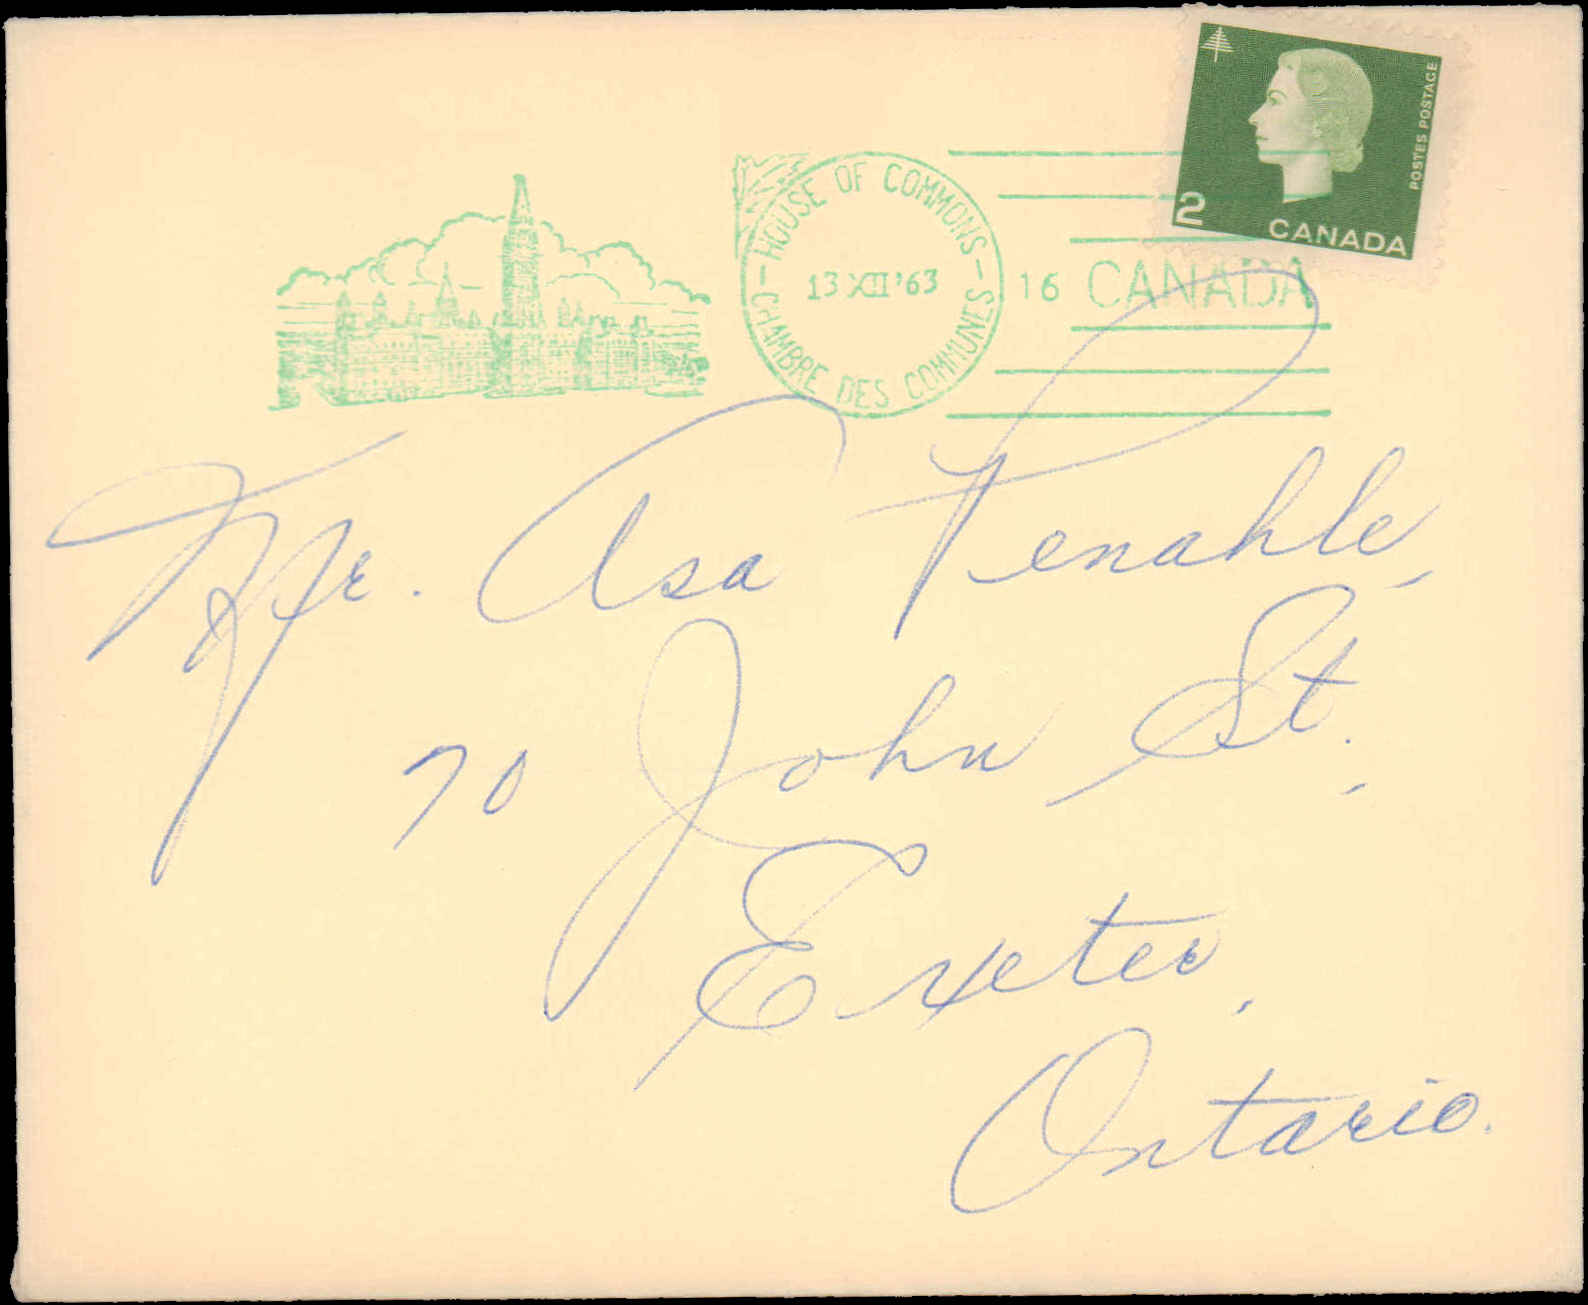 POSTES POSTAGE
2 CANADA
HOUSE OF COMMONS
13 XII '63
CHAMBRE DES COMMUNES
16 CANADA
Mr. Asa Penhale,
70 John St.,
Exeter,
Ontario.